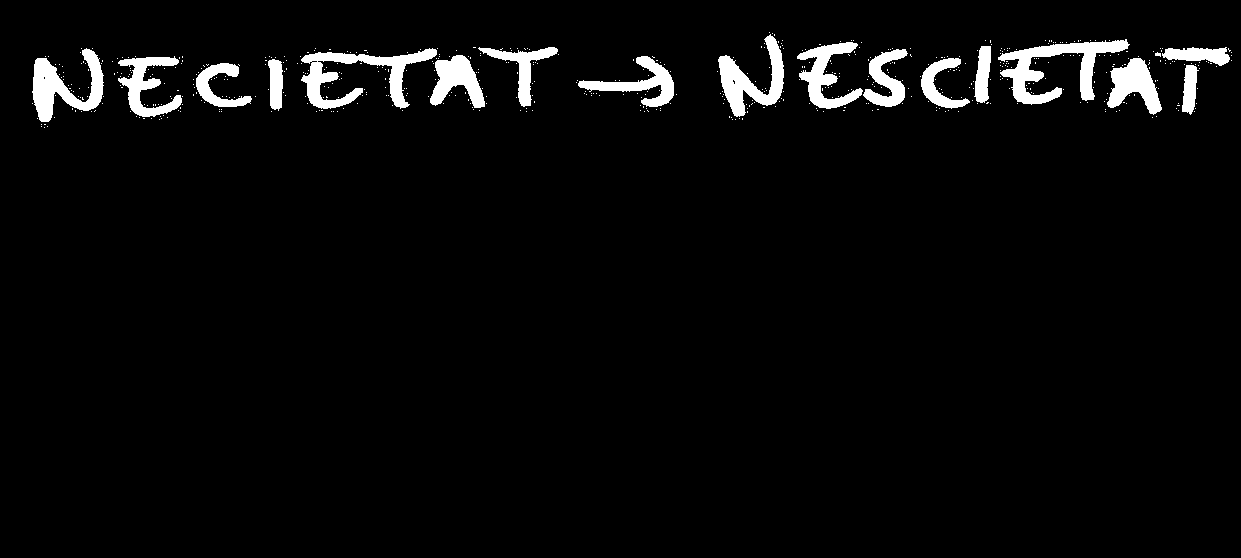 NECIETAT → NESCIETAT